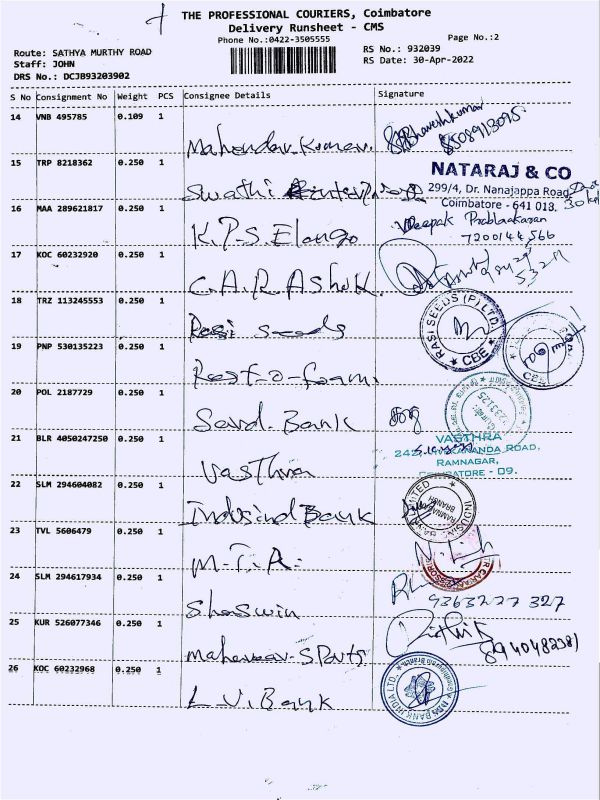 THE PROFESSIONAL COURIERS, Coimbatore
Delivery Runsheet - CMS
Phone No.:0422-3505555
Page No.:2
Route: SATHYA MURTHY ROAD
Staff: JOHN
DRS No.: DCJB93203902
RS No.: 932039
RS Date: 30-Apr-2022
S No Consignment No Weight PCS Consignee Details Signature
14 VNB 495785 0.109 1 Mahendar. Kumar. Bhaveshkumar
8508913095
15 TRP 8218362 0.250 1 Swathi
NATARAJ & CO
299/4, Dr. Nanajappa Road
Coimbatore - 641 018.
16 MAA 289621817 0.250 1 K.P.S. Elango Deepak Prabhakaran
7200144566
17 KOC 60232920 0.250 1 C.A.R. Ashok.
18 TRZ 113245553 0.250 1 Rasi seeds
RASI SEEDS (P) LTD.
CBE
19 PNP 530135223 0.250 1 Rest-o-foam.
20 POL 2187729 0.250 1 Bank
21 BLR 4050247250 0.250 1 Vasthra
VASTHRA
ROAD,
RAMNAGAR,
COIMBATORE - 09.
22 SLM 294604082 0.250 1 Indusind Bank
23 TVL 5606479 0.250 1 M.T.A.
24 SLM 294617934 0.250 1 Shaswin
9363227327
25 KUR 526077346 0.250 1 Mahaveer-Sports Rithik
8940482381
26 KOC 60232968 0.250 1 L.V. Bank
BANK INDIA LTD.